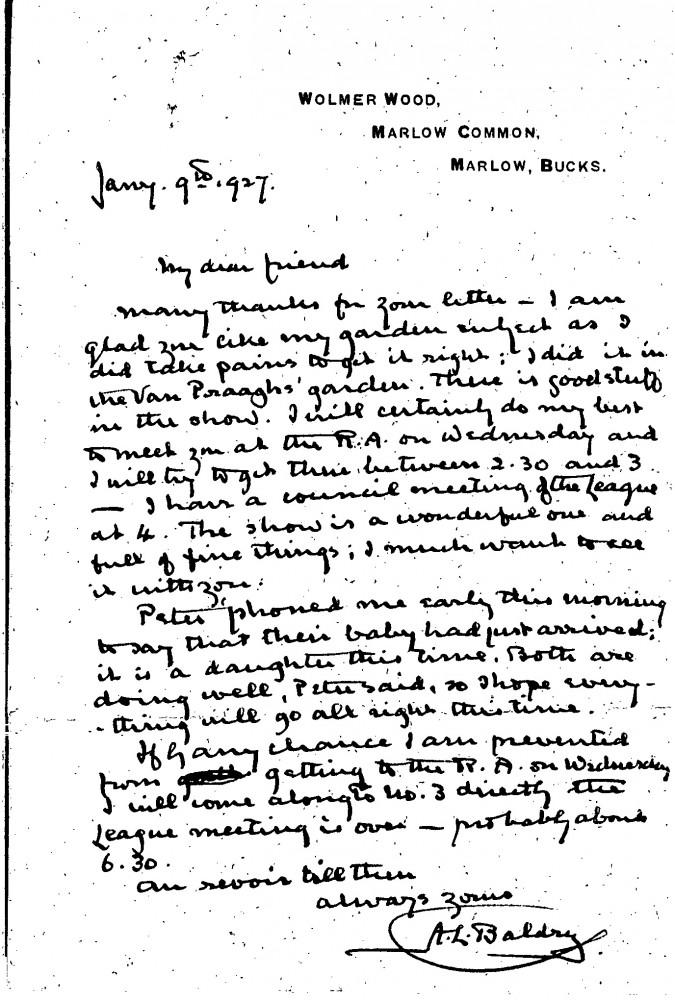 WOLMER WOOD,
MARLOW COMMON,
MARLOW, BUCKS.
Jany. 9th. 1927.
My dear friend
Many thanks for your letter – I am
glad you like my garden subject as I
did take pains to get it right; I did it in
the Van Praaghs' garden. There is good stuff
in the show. I will certainly do my best
to meet you at the R.A. on Wednesday and
I will try to get there between 2.30 and 3
– I have a council meeting of the League
at 4. The show is a wonderful one and
full of fine things; I much want to see
it with you.
Peter 'phoned me early this morning
to say that their baby had just arrived;
it is a daughter this time. Both are
doing well, Peter said, so I hope every-
-thing will go all right this time.
If by any chance I am prevented
from getting to the R.A. on Wednesday
I will come along to No. 3 directly the
League meeting is over – probably about
6.30.
Au revoir till then
always yours
A.L. Baldry.